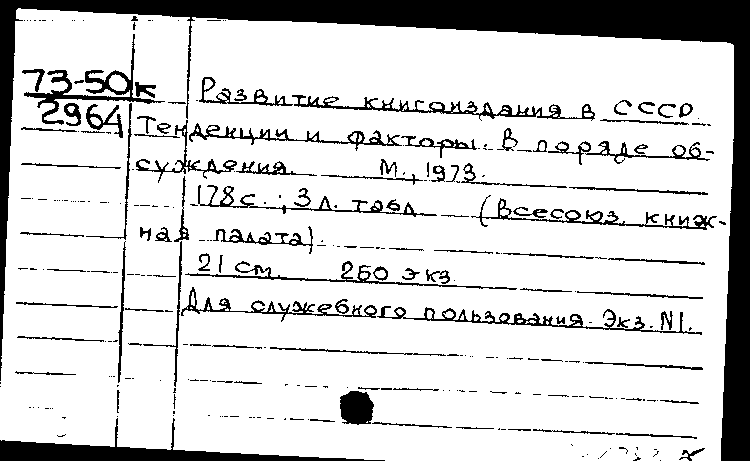 73-50к
2964
Развитие книгоиздания в СССР.
Тенденции и факторы. В поряде об-
суждения. М., 1973.
178с.; 3 л. табл. (Всесоюз. книж-
ная палата).
21 см. 260 экз.
Для служебного пользования. Экз. N1.